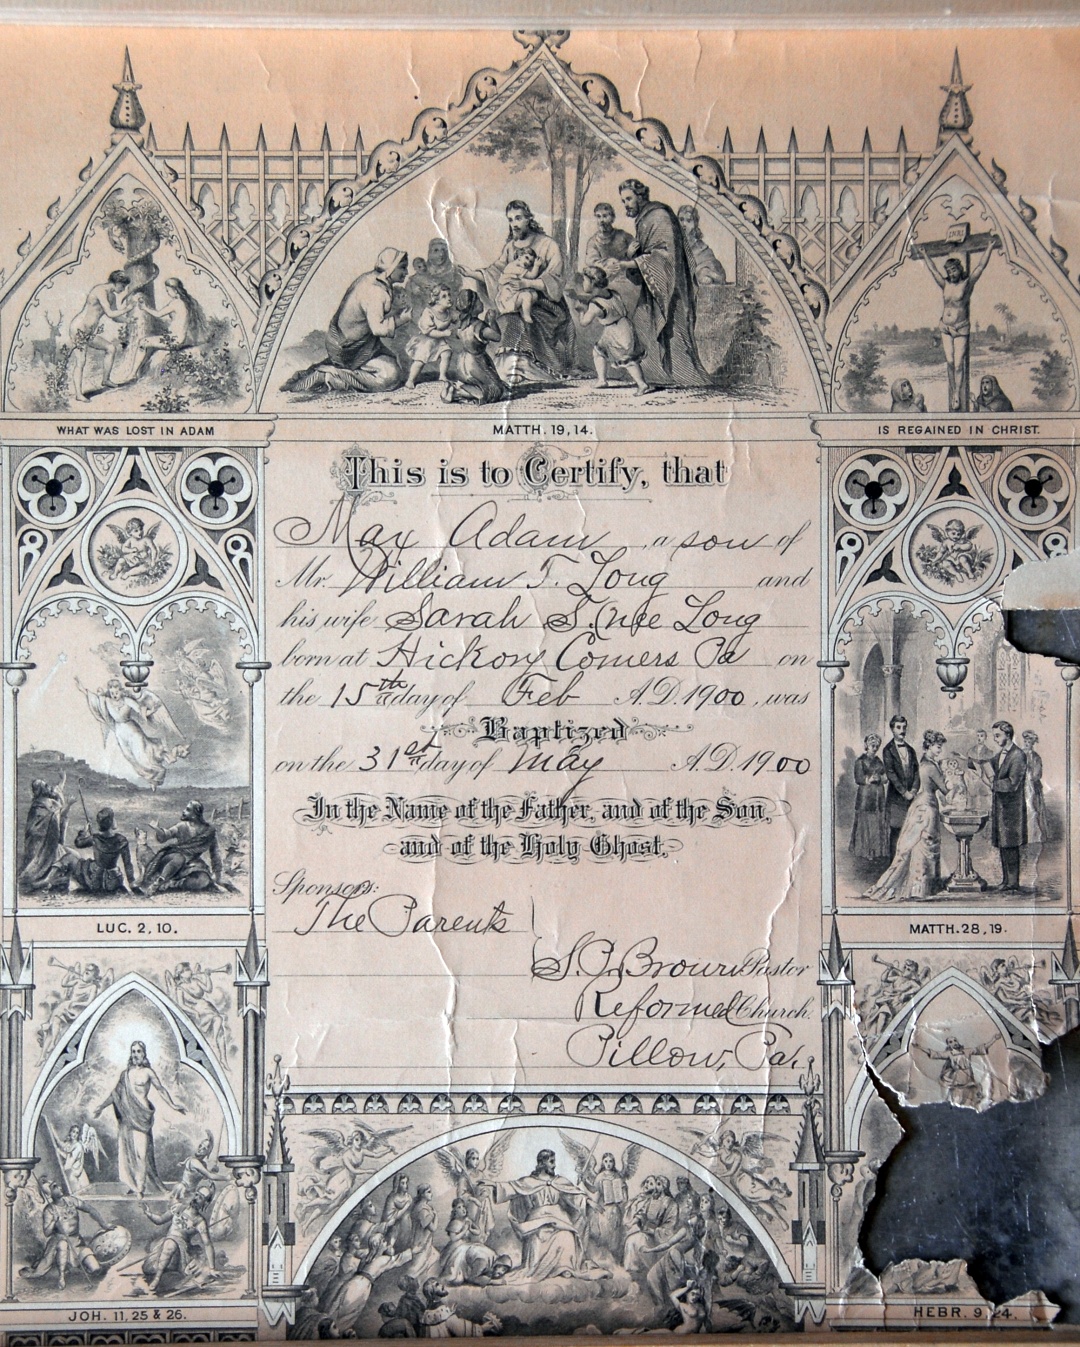 INRI
WHAT WAS LOST IN ADAM
MATTH. 19, 14.
IS REGAINED IN CHRIST.
This is to Certify, that
May Adam, a son of
Mr. William T. Long and
his wife Sarah S. (nee Long
born at Hickory Corners Pa on
the 15th day of Feb A.D. 1900, was
Baptized
on the 31st day of May A.D. 1900
In the Name of the Father, and of the Son,
and of the Holy Ghost.
Sponsors:
The Parents
LUC. 2, 10.
MATTH. 28, 19.
S. P. Brown Pastor
Reformed Church.
Pillow, Pa.
JOH. 11, 25 & 26.
HEBR. 9, 24.